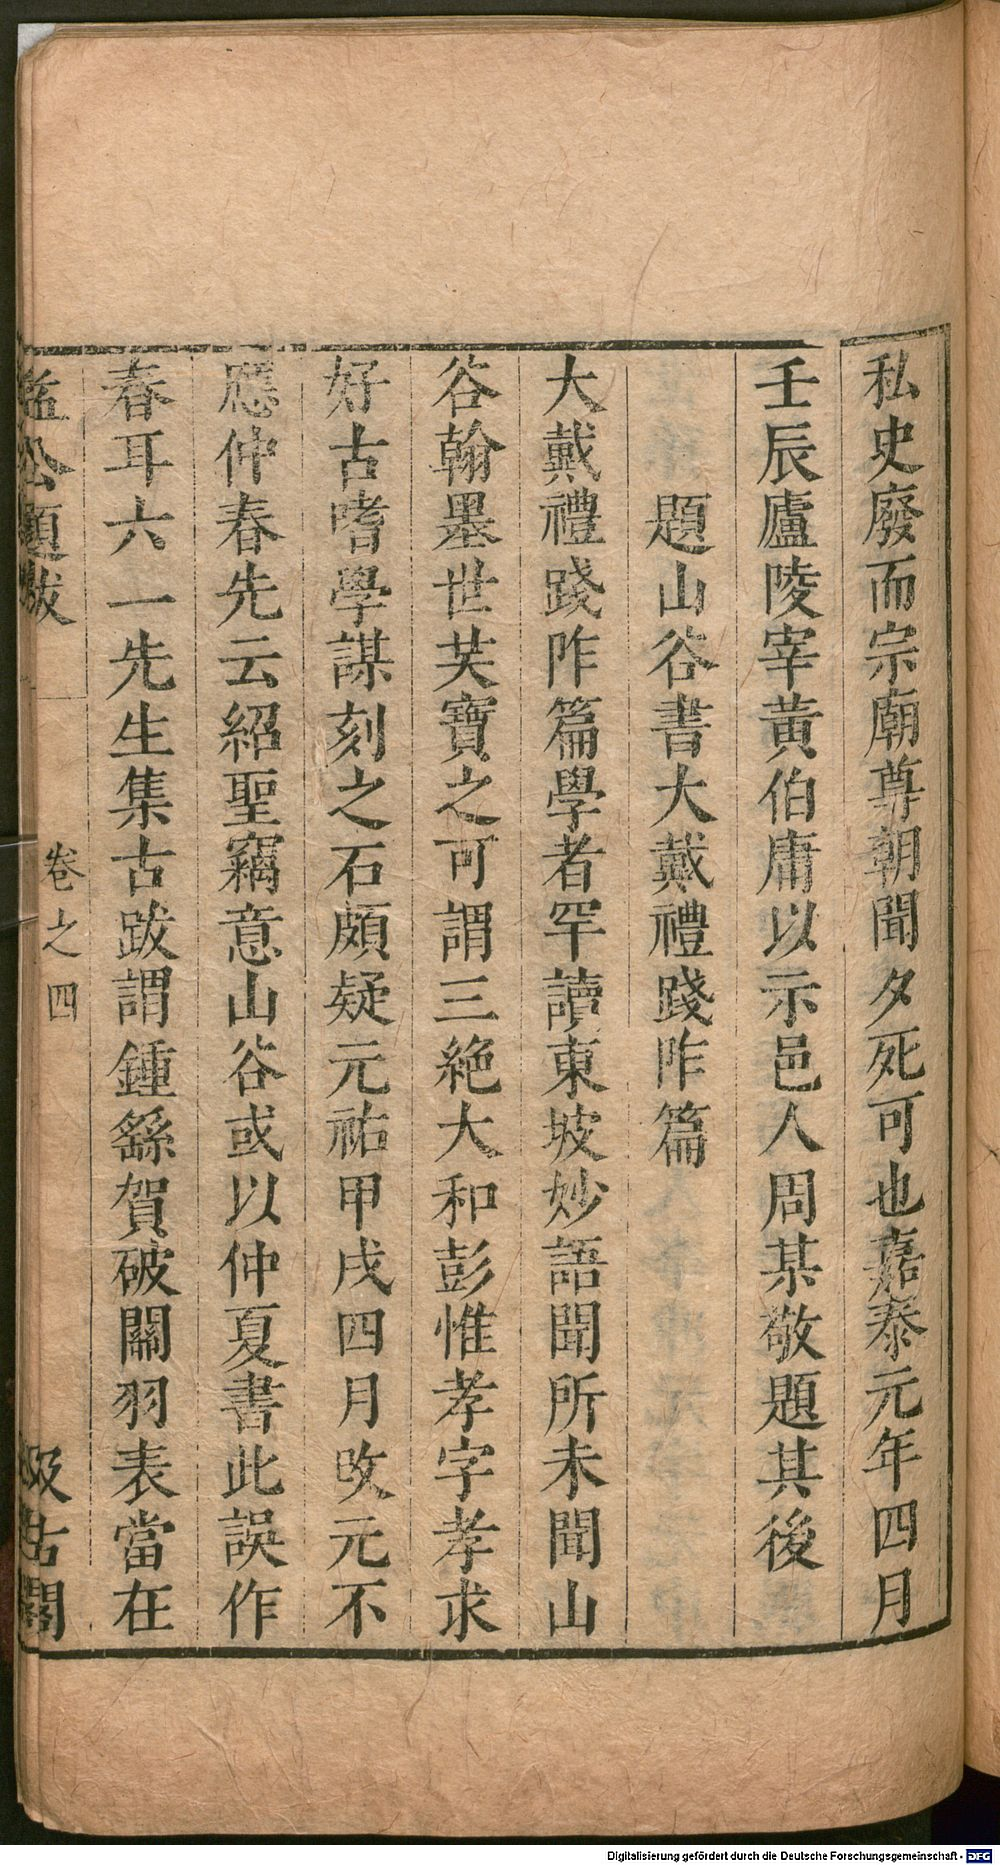 私史廢而宗廟尊朝聞夕死可也嘉泰元年四月
壬辰廬陵宰黄伯庸以示邑人周某敬題其後
題山谷書大戴禮踐阼篇
大戴禮踐阼篇學者罕讀東坡妙語聞所未聞山
谷翰墨世共寶之可謂三絶大和彭惟孝字孝求
好古嗜學謀刻之石頗疑元祐甲戌四月攺元不
應仲春先云紹聖竊意山谷或以仲夏書此誤作
春耳六一先生集古跋謂鍾繇賀破關羽表當在
益公題跋
卷之四
汲古閣
Digitalisierung gefördert durch die Deutsche Forschungsgemeinschaft - DFG